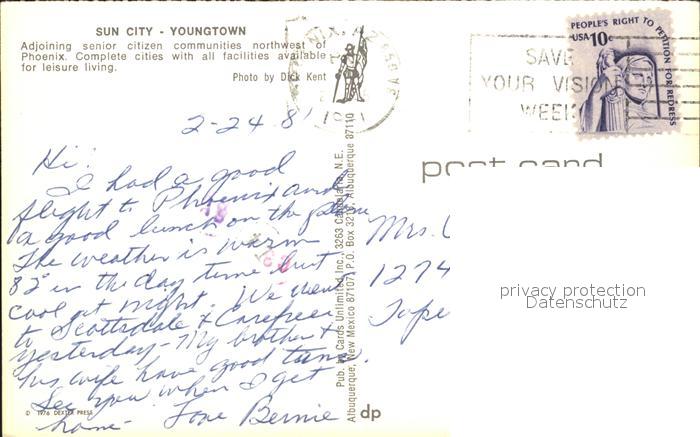 SUN CITY - YOUNGTOWN
Adjoining senior citizen communities northwest of
Phoenix. Complete cities with all facilities available
for leisure living.
Photo by Dick Kent
2-24 81
Hi!
I had a good
flight to Phoenix and
a good lunch on the plane
The weather is warm
82° in the day time but
cool at night. We went
to Scottsdale & Carefree
yesterday - My brother &
his wife have good tans.
See you when I get
home - Love Bernie
© 1976 DEXTER PRESS
dp
Pub. by Cards Unlimited Inc., 3263 N.E., Albuquerque 87110
Albuquerque, New Mexico 87107, P.O. Box
PEOPLE'S RIGHT TO PETITION FOR REDRESS
USA 10c
SAVE
YOUR VISION
WEEK
post card
Mrs.
1274
Tope
privacy protection
Datenschutz